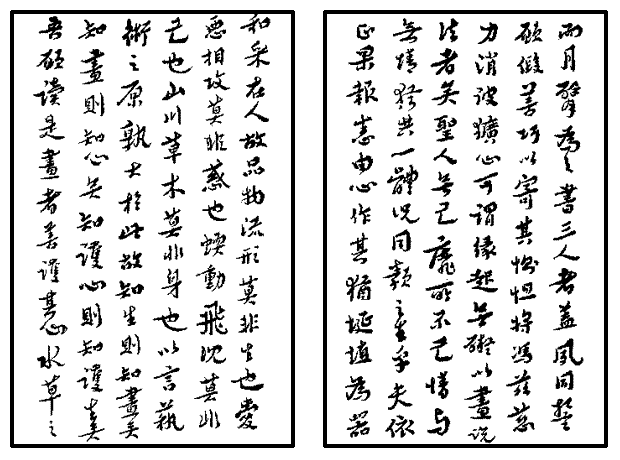 而月臂為之書三人者蓋夙同誓
願假善巧以寄其惻怛將馮茲慈
力消彼獷心可謂緣起無礙以畫說
法者矣聖人無己靡所不己情與
無情猶共一體況同類之生乎夫依
正果報悉由心作其猶埏埴為器
和采在人故品物流形莫非生也愛
惡相攻莫非惑也蝡動飛沈莫非
己也山川草木莫非身也以言藝
術之原孰大於此故知生則知畫矣
知畫則知心矣知護心則知護生矣
吾願讀是畫者善護其心水草之